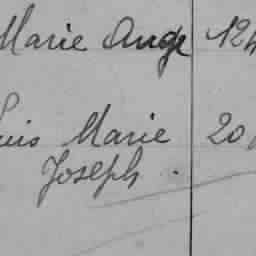 Marie Ange 12
uis Marie 20
Joseph .